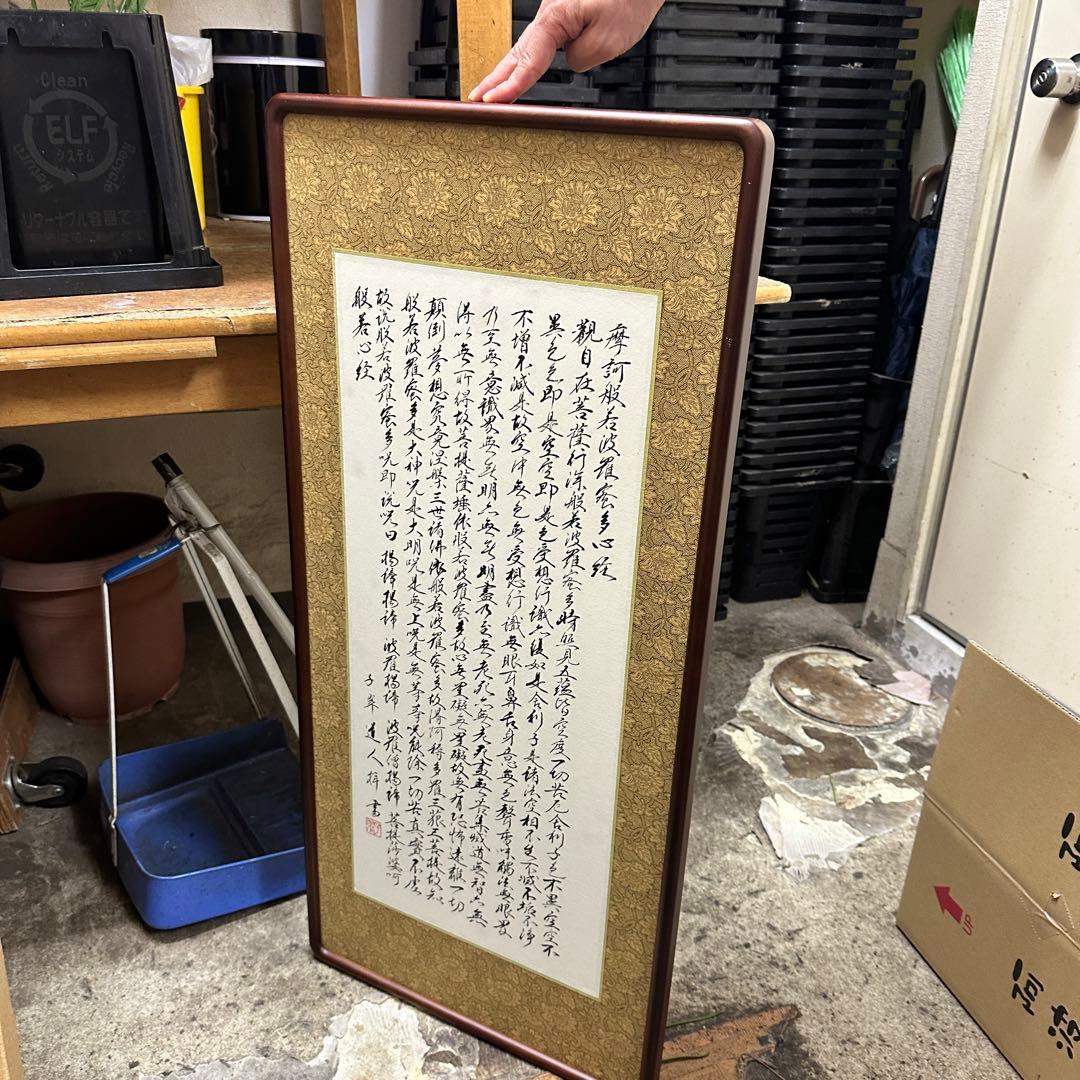 摩訶般若波羅蜜多心経
觀自在菩薩行深般若波羅蜜多時照見五蘊皆空度一切苦厄舍利子色不異空空不
異色色即是空空即是色受想行識亦復如是舍利子是諸法空相不生不滅不垢不浄
不增不減是故空中無色無受想行識無眼耳鼻舌身意無色聲香味觸法無眼界
乃至無意識界無無明亦無無明盡乃至無老死亦無老死盡無苦集滅道無智亦無
得以無所得故菩提薩埵依般若波羅蜜多故心無罣礙無罣礙故無有恐怖遠離一切
顛倒夢想究竟涅槃三世諸佛依般若波羅蜜多故得阿耨多羅三藐三菩提故知
般若波羅蜜多是大神呪是大明呪是無上呪是無等等呪能除一切苦真實不虚
故説般若波羅蜜多呪即説呪曰 揭諦揭諦 波羅揭諦 波羅僧揭諦 菩提沙婆呵
般若心経
道人 書
Clean
ELF
システム
Return
Recycle
リターナブル容器
UP